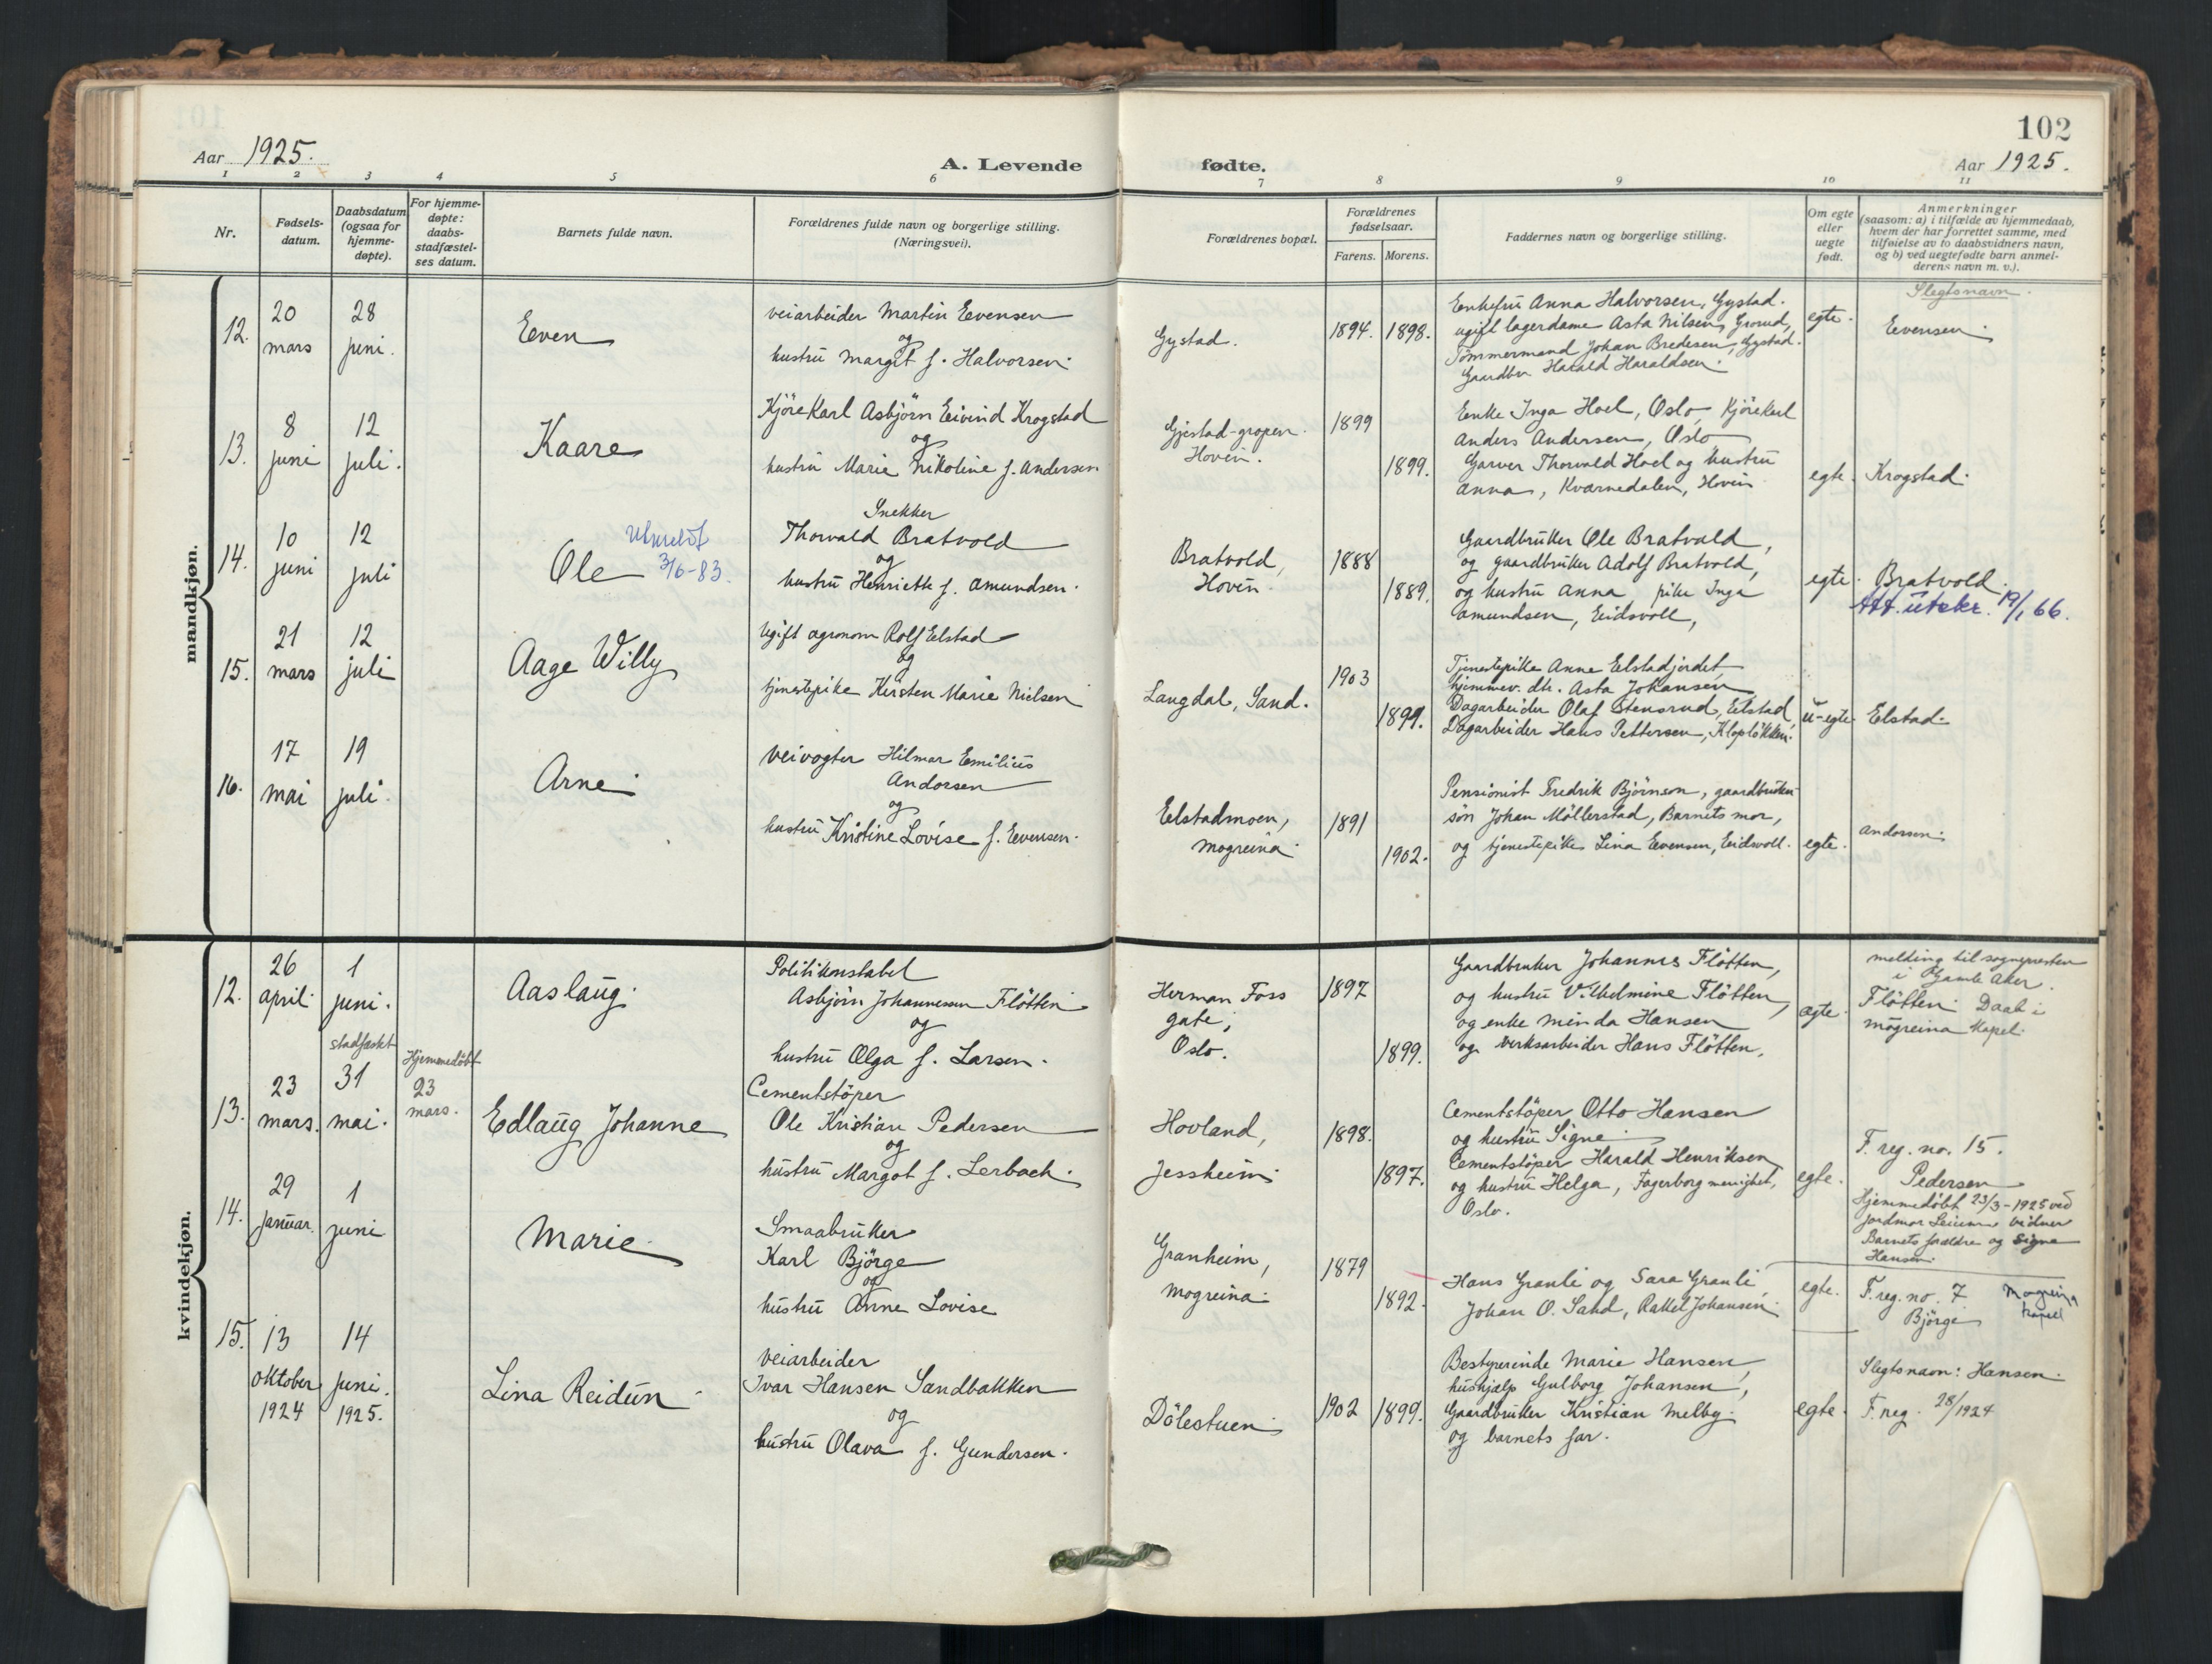 102
Aar 1925.
A. Levende
fødte.
Aar 1925.
1 2 3 4 5 6 7 8 9 10 11
Nr.
Fødsels-
datum.
Daabsdatum
(ogsaa for
hjemme-
døpte).
For hjemme-
døpte:
daabs-
stadfæstel-
ses datum.
Barnets fulde navn.
Forældrenes fulde navn og borgerlige stilling.
(Næringsvei).
Forældrenes bopæl.
Forældrenes
fødselsaar.
Farens. Morens.
Faddernes navn og borgerlige stilling.
Om egte
eller
uegte
født.
Anmerkninger
(saasom: a) i tilfælde av hjemmedaab,
hvem der har forrettet samme, med
tilføielse av to daabsvidners navn,
og b) ved uegtefødte barn anmel-
derens navn m. v.).
mandkjøn.
12.
20
mars
28
juni.
Even
veiarbeider Martin Evensen
og
hustru Margit f. Halvorsen.
Gystad.
1894. 1898.
Enkefru Anna Halvorsen, Gystad.
ugift lagerdame Asta Nilsen, Grorud,
Tømmermand Johan Bredesen, Gystad.
Gaardbr. Harald Haraldsen.
egte.
Slegtsnavn.
Evensen.
13.
8
juni
12
juli.
Kaare
Kjörekarl Asbjörn Eivind Krogstad
og
hustru Marie Nikoline f. Andersen
Gjestad-gropen.
Hovin.
1899
1899.
Enke Inga Hoel, Oslo, Kjörekarl
Anders Andersen, Oslo
Garver Thorvald Hoel og hustru
Anna, Kvarnedalen, Hovin
egte.
Krogstad.
14.
10
juni
12
juli
Ole
Utmeldt
3/6-83.
Snekker
Thorvald Bratvold
og
hustru Henriette f. Amundsen.
Bratvold,
Hovin.
1888
1889.
Gaardbruker Ole Bratvold,
og gaardbruker Adolf Bratvold,
og hustru Anna, pike Inga
Amundsen, Eidsvoll,
egte.
Bratvold.
Att. utskr. 19/1 66.
15.
21
mars
12
juli
Aage Willy
Ugift agronom Rolf Elstad
og
tjenestepike Kirsten Marie Nielsen
Langdal, Sand.
1903
1899.
Tjenestepike Anne Elstadjordet
hjemmev. dtr. Asta Johansen
Dagarbeider Olaf Stensrud, Elstad,
Dagarbeider Hans Pettersen, Klopløkken.
u-egte.
Elstad.
16.
17
mai
19
juli.
Arne
Veivogter Hilmar Emilius
Andorsen
og
hustru Kristine Lovise f. Evensen.
Elstadmoen,
Mogreina.
1891
1902.
Pensionist Fredrik Björnson, gaardbruker-
søn Johan Möllerstad, Barnets mor,
og tjenestepike Lina Evensen, Eidsvoll.
egte.
Andorsen.
kvindekjøn.
12.
26
april.
1
juni.
Aaslaug
Politikonstabel
Asbjörn Johannessen Flötten
og
hustru Olga f. Larsen.
Herman Foss
gate,
Oslo.
1897
1899.
Gaardbruker Johannes Flötten,
og hustru Vilhelmine Flötten,
og enke Minda Hansen
og verksarbeider Hans Flötten.
egte.
melding til sognepresten
i Gamle Aker.
Flötten. Daab i
Mogreina Kapel.
13.
23
mars.
stadfæstet
31
mai.
Hjemmedöbt
23
mars.
Edlaug Johanne
Cementstöper
Ole Kristian Pedersen
og
hustru Margot f. Lerbach.
Hovland,
Jessheim.
1898.
1897.
Cementstöper Otto Hansen
og hustru Signe
Cementstöper Harald Henriksen
og hustru Helga, Fagerborg menighet,
Oslo.
egte.
F. reg. no. 15.
Pedersen
Hjemmedöbt 23/3-1925 ved
jordmor vidner
Barnets forældre og Signe
Hansen.
14.
29
Januar.
1
juni
Marie
Smaabruker
Karl Björge
og
hustru Anne Lovise
Granheim,
Mogreina.
1879
1892.
Hans Granli og Sara Granli,
Johan O. Sand, Rakel Johansen.
egte.
F. reg. no. 7
Björge
Mogreina
kapell
15.
13
oktober
1924
14
juni.
1925.
Lina Reidun
Veiarbeider
Ivar Hansen Sandbakken
og
hustru Olava f. Gundersen.
Dölestuen
1902 1899.
Bestyrerinde Marie Hansen,
hushjælp Gulborg Johansen,
Gaardbruker Kristian Melby.
og barnets far.
egte.
Slegtsnavn: Hansen.
F. reg. 28/1924